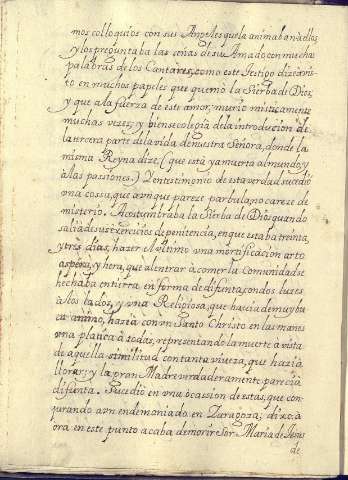 mos colloquios con sus Angeles que la animaban a ellos
y los preguntaba las señas de su Amado con muchas
palabras de los Cantares, como este Testigo dize avis
to en muchos papeles que quemó la Sierba de Dios,
y que a la fuerza de este amor, murio misticamente
muchas vezes, y bien se colegia de la introducion de
la tercera parte de la vida de nuestra Señora, donde la
misma Reyna dize, (que está ya muerta al mundo, y
á las passiones.) Y en testimonio de esta verdad sucedió
una cossa, que aunque pareze parbula, no careze de
misterio. Acostumbraba la Sierba de Dios quando
salia de sus exercicios de penitencia, en que estaba treinta,
y tres dias, hazer el ultimo una mortificacion arto
aspera, y hera, que al entrar á comer la Comunidad se
hechaba en tierra en forma de difunta, con dos luzes
á los lados, y una Religiosa, que hacia de muy bu
en animo, hazia con un Santo Christo en las manos
una platica á todas, representando la muerte a vista
de aquella similitud con tanta viveza, que hazia
llorar; y la gran Madre verdaderamente parecia
difunta. Sucedió en una ocassion de estas, que con
jurando a un endemoniado en Zaragoza; dixo: a
ora en este punto acaba de morir Sor Maria de Jesus
de